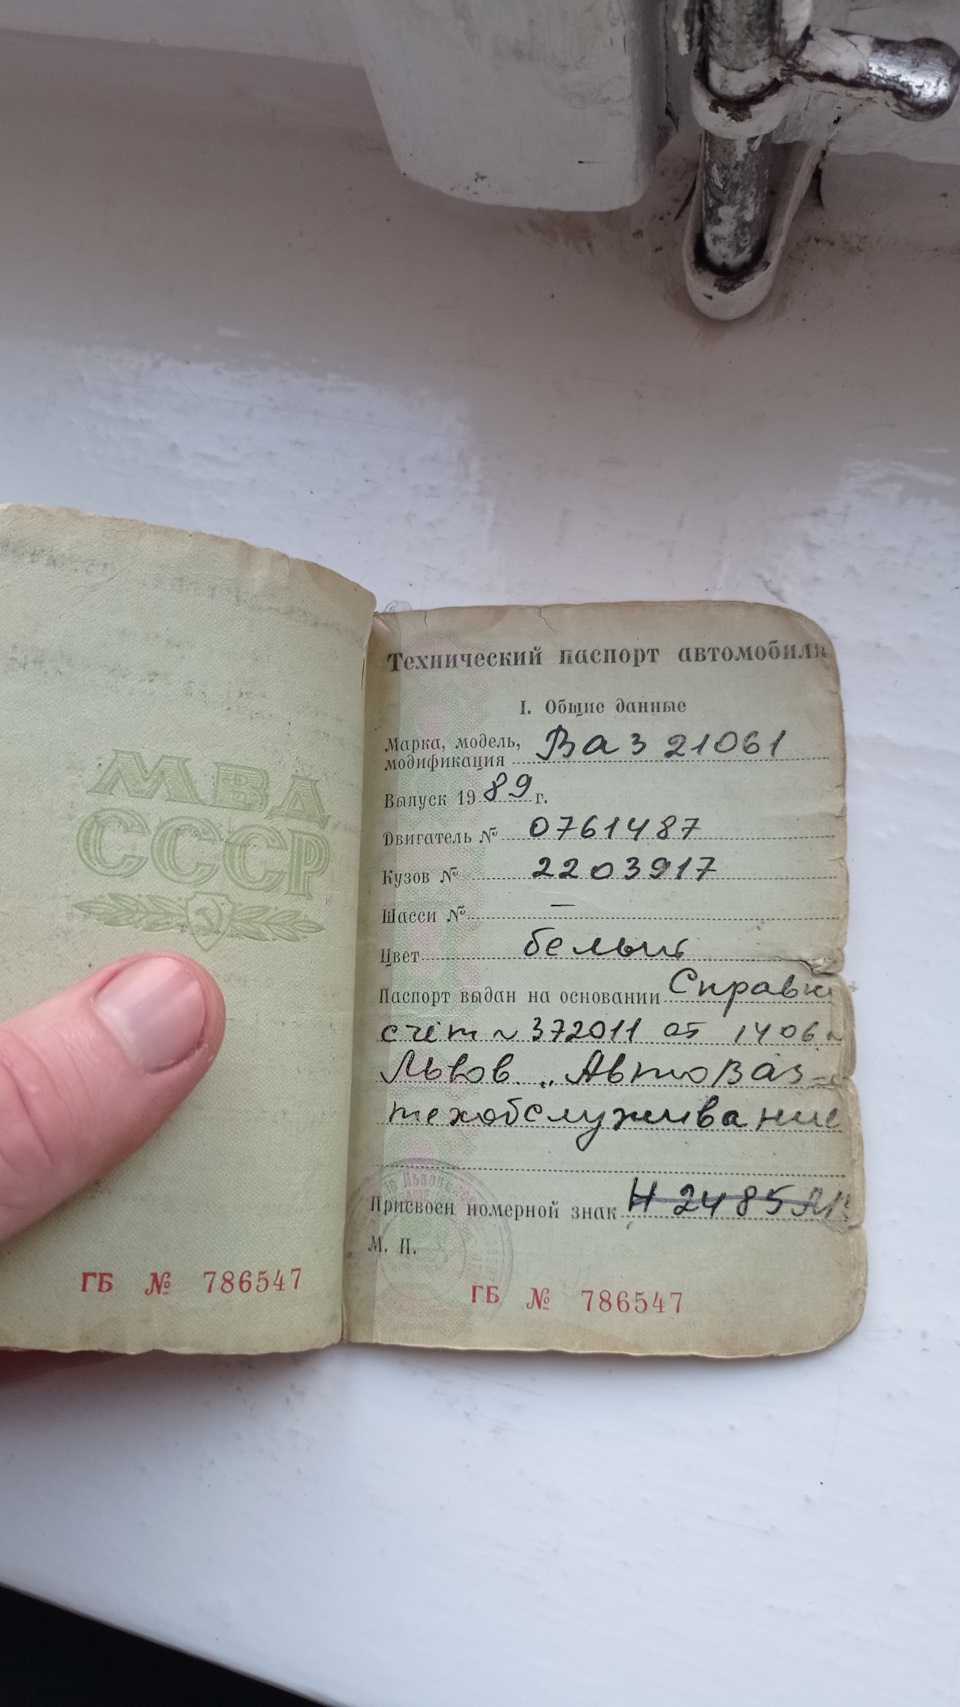 МВД
СССР
ГБ № 786547
Технический паспорт автомобиля
I. Общие данные
Марка, модель,
модификация ВАЗ 21061
Выпуск 1989 г.
Двигатель № 0761487
Кузов № 2203917
Шасси № —
Цвет белый
Паспорт выдан на основании Справки
счёт № 372011 от 1406
Львов „АвтоВаз-
техобслуживание
Присвоен номерной знак Н 2485
М. П.
ГБ № 786547